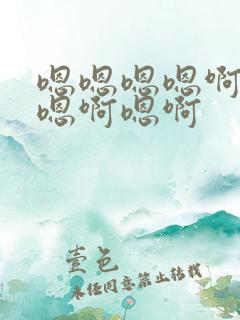 嗯嗯嗯嗯啊
嗯啊嗯啊
壹色
未经同意禁止转载